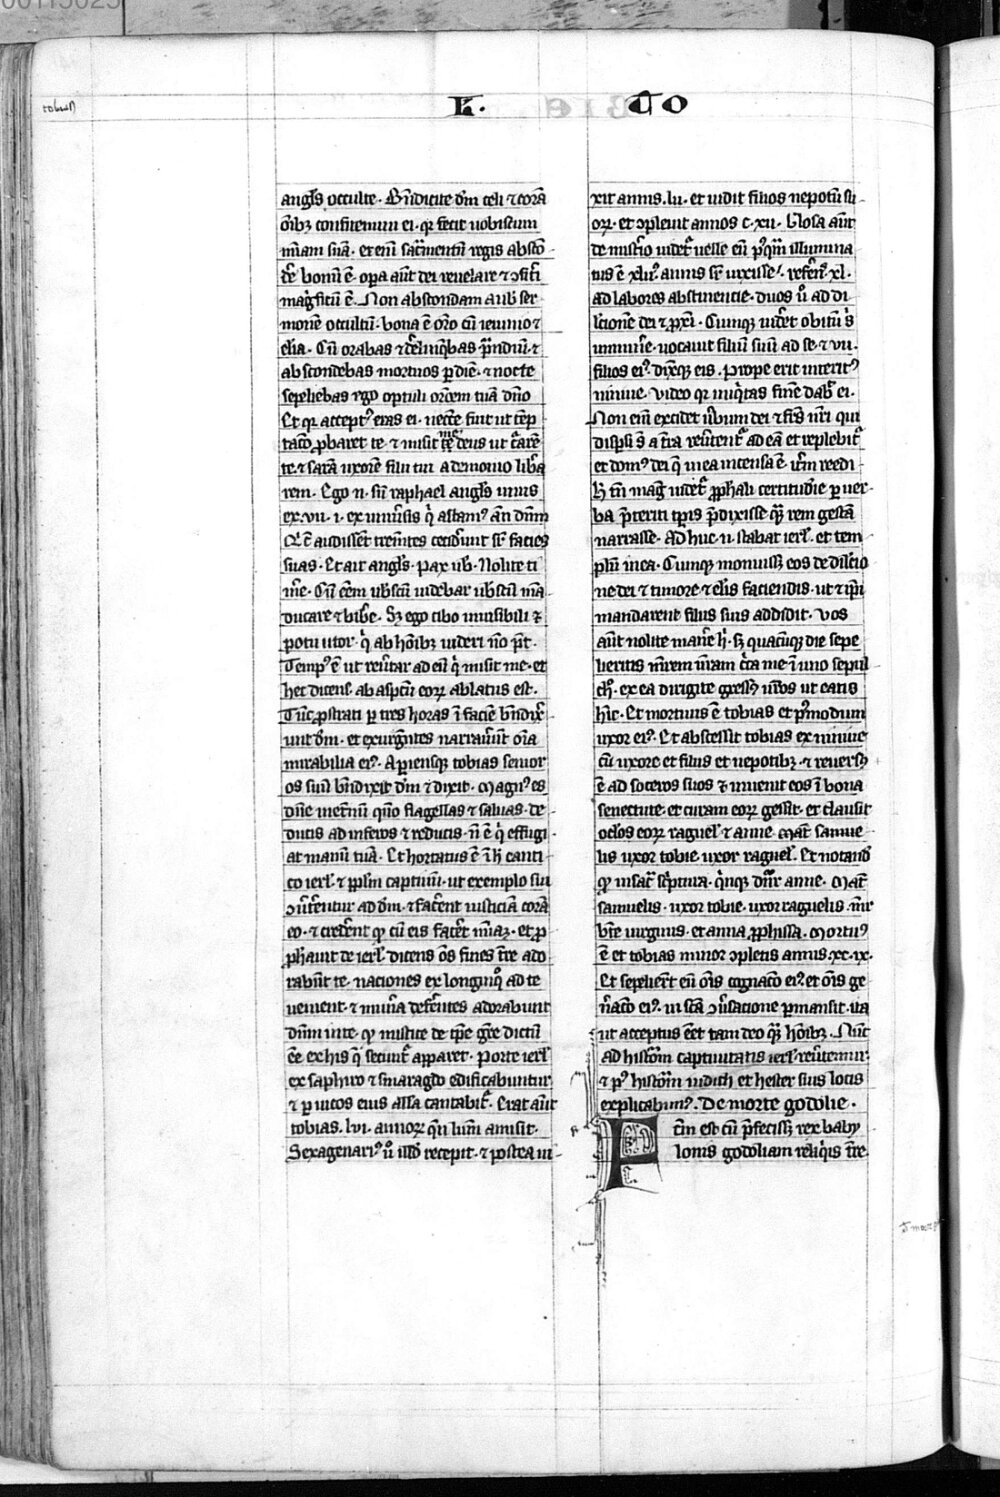 L. TO
angl's occulte. Bn̄dicite dm̄ celi ⁊ corā
oībꝫ confitemini ei. qꝛ fecit uobiscum
mīam suā. et enī sac̄mentū regis abscō
de̅ bonū ē. opa aūt dei reuelare ⁊ ↄfit̄i
mag̾ficū ē. Non abscondam a uob̄ ser
monē occultū. bona ē or̄o cū ieiunio ⁊
elīa. Cū orabas ⁊ de̅linq̄bas p̄ndiū. ⁊
abscondebas mortuos ꝑ diē. ⁊ nocte
sepeliebas ego optuli or̄oem tuā dn̄o
Et qꝛ accept᷒ eras ei. necc̄e fuit ut tēp
tac̄o ꝓbaret te. ⁊ misit me deus ut c̄arē
te. ⁊ sarā uxorē filii tui a demonio lib̄a
rem. Ego .n. sū raphael angl's unus
ex .vii. .i. ex uniu̅sis q̇ astam᷒ an̄ dn̄m
Q̄ ē audissēt trem̄tes cecid̄unt sr̄ facies
suas. Et ait angl's. pax uob̄. Nolite ti
me̅. Cū eēm uobscū uidebar uobscū mā
ducare ⁊ bibe̅. Sꝫ ego cibo inuisibili ⁊
potu utor. q̇ ab hōibꝫ uideri nō pt̄.
Temp᷒ ē ut reu̅tar ad eū q̇ misit me. et
hec dicens. ab aspectu eoꝝ ablatus est.
Tūc ꝓstrati ꝑ tres horas ī faciē bn̄dix̄
unt dm̄. et exurḡntes narrau̅unt oīa
mirabilia ei᷒. Aperiensqꝫ tobias senior
os suū bn̄dixit dm̄ ⁊ dixit. Magn᷒ es
dn̄e inet̄nū qm̄o flagellas ⁊ saluas. de
ducis ad inferos ⁊ reducis. n̄ ē q̇ effugi
at manū tuā. Et hortatus ē isr̄l canti
co ierl̄. ⁊ ppl̄m captiuū. ut exemplo sui
ↄu̅terentur ad dm̄. ⁊ fac̄ent iusticiā corā
eo. ⁊ cred̄ent qꝫ cū eis facēt mīaꝫ. et ꝓ
phauit de ierl̄. dicens oēs fines t̄re ado
rabūt te. naciones ex longinq̊ ad te
uenient. ⁊ mun̄a defe̅entes adorabunt
dn̄m in te. qꝫ mistice de tp̄e gr̄e dictū
eē ex his q̄ secunt̄ apparet. Porte ierl̄
ex saphiro ⁊ smaragdo edificabuntur
⁊ ꝑ uicos eius all'a cantabit̄. Erat aūt
tobias .lvi. annoꝝ qn̄ lum̄ amisit.
Sexagenari᷒ ů illd̄ recepit. ⁊ postea ui
xit annis .lii. et uidit filios nepotū su
oꝝ. et ↄpleuit annos c.xii. Glosa aūt
de nūo uidet̄ uelle eū pꝰq̄m illumina
tus ē .xlii. annis sr̄ uixisse. refēns .xl.
ad labores abstinencie. duos ů ad di
l̄cionē dei ⁊ ꝓxi. Cumqꝫ uidēt obitū s̄
imminē̅. uocauit filiū suū ad se. ⁊ vii.
filios ei᷒. dixitqꝫ eis. Prope erit interit᷒
niniue. Video qꝛ iniq̇tas finē dab̄ ei.
Non enī excidet u̅bum dei ⁊ frēs nr̄i qui
dispsi s̄t a t̄ra reu̅tent̄ ad eā et replebit̄
et dom᷒ dei q̄ in ea incensa ē. it̄m reedi
h̄ tn̄ mag̾ uidet̄ ꝓphali certitudīe ꝑ uer
ba p̄teriti tp̄is p̄dixisse q̄ꝫ rem gestā
narrasse. Ad huc .n. stabat ierl̄. et tem
plū in ea. Cumqꝫ monuissꝫ eos de dil̄cio
ne dei ⁊ timore ⁊ elīs faciendis. ut ⁊ ip̄i
mandarent filiis suis addidit. Vos
aūt nolite mane̅ h̄. sꝫ quacūqꝫ die sepe
lieritis mr̄em ur̄am c̄ca me ī uno sepul
ch̄ro. ex ea dirigite gressꝰ ur̄os ut eatis
hīc. Et mortuus ē tobias et pꝰmodum
uxor ei᷒. Et abscessit tobias ex niniue
cū uxore et filiis et nepotibꝫ. ⁊ reuersꝰ
ē ad soceros suos ⁊ inuenit eos ī bona
senectute. et curam eoꝝ gessit. et clausit
oc̄los eoꝝ raguel̄. ⁊ anne. Mat̄ samue
lis uxor tobie. uxor raguel̄. Et notand̄
qꝫ in sac̄ sc̄ptura. q̇nqꝫ dn̄r anne. Mat̄
samuelis. uxor tobie. uxor raguelis. mr̄
bt̄e uirginis. et anna ꝓphissa. Mortu᷒
ē et tobias minor ↄpletis annis .xc.ix.
Et sepelier̄t eū oēs cognac̄o ei᷒. et oīs ge
n̄ac̄o ei᷒. in sc̄a ↄu̅sacione ꝑmansit. ita
ut acceptus eēt tam deo q̄ꝫ hōibꝫ. Nūc
ad histor̄m captiuitatis ierl̄ reu̅temur.
⁊ pꝰ histor̄m iudith et hester suis locis
explicabim᷒. De morte godolie.
Fc̄m est cū p̄fecissꝫ rex baby
lonis godoliam reliq̇is t̄re